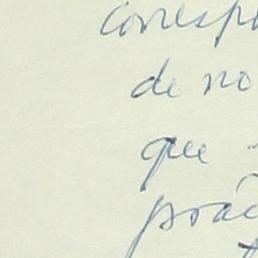 corresp
de no
que
prác